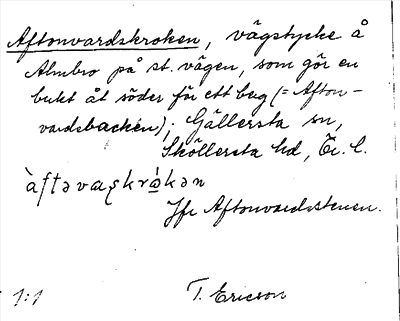 Aftonvardskroken, vägstycke å
Almbro på st. vägen, som gör en
bukt åt söder för ett berg (= Afton-
vardsbacken); Gällersta sn,
Sköllersta hd, Ör. l.
àftəvaʂkrókən
Jfr Aftonvardsstenen.
1:1 T. Ericson